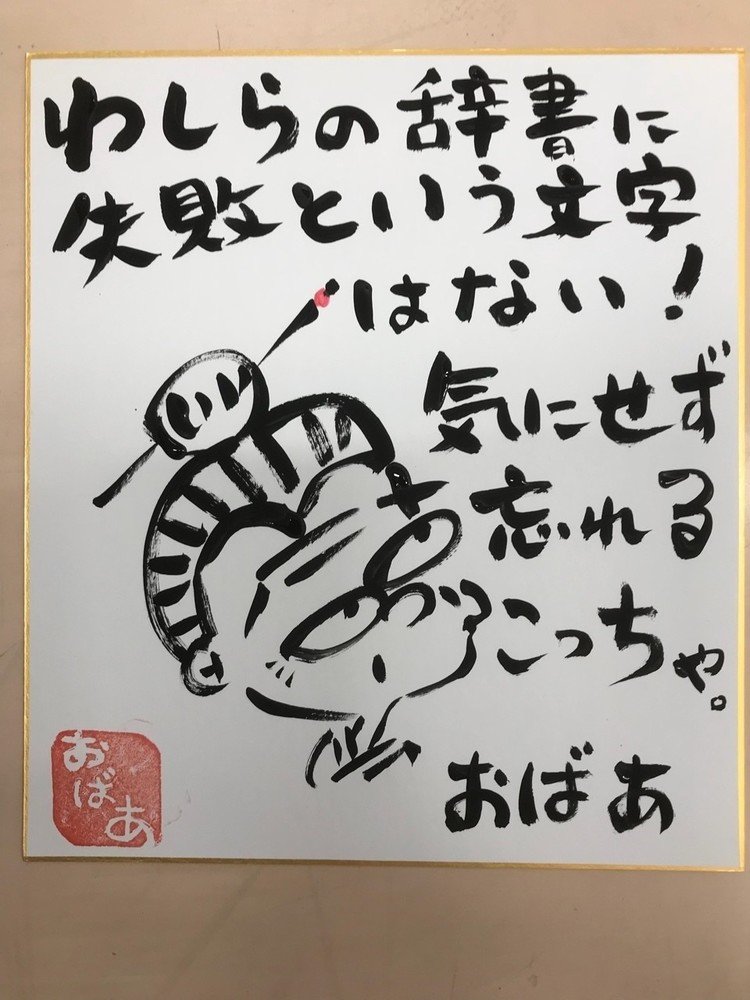 わしらの辞書に
失敗という文字
はない!
気にせず
忘れる
こっちゃ。
おばあ
おばあ